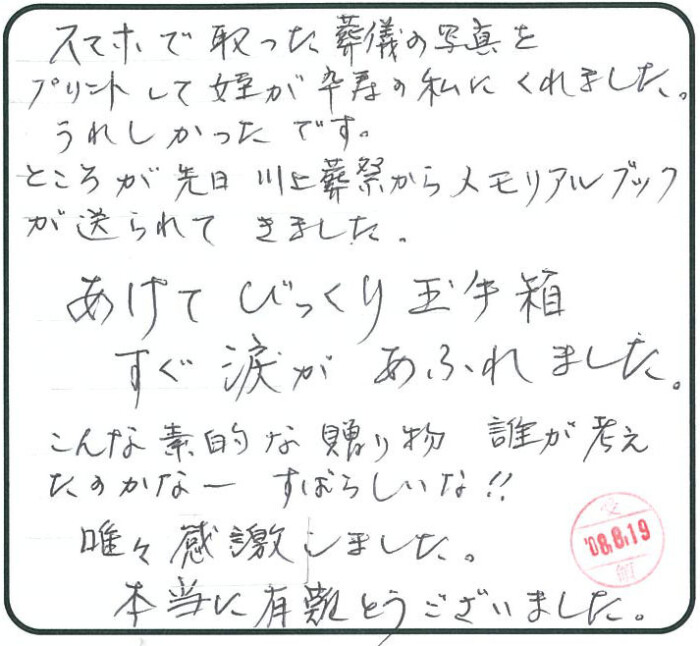 スマホで取った葬儀の写真を
プリントして姪が卆寿の私にくれました。
うれしかったです。
ところが先日川上葬祭からメモリアルブック
が送られてきました。
あけてびっくり玉手箱
すぐ涙があふれました。
こんな素的な贈り物 誰が考え
たのかなー すばらしいな!!
唯々感激しました。
本当に有難とうございました。
受
'08.8.19